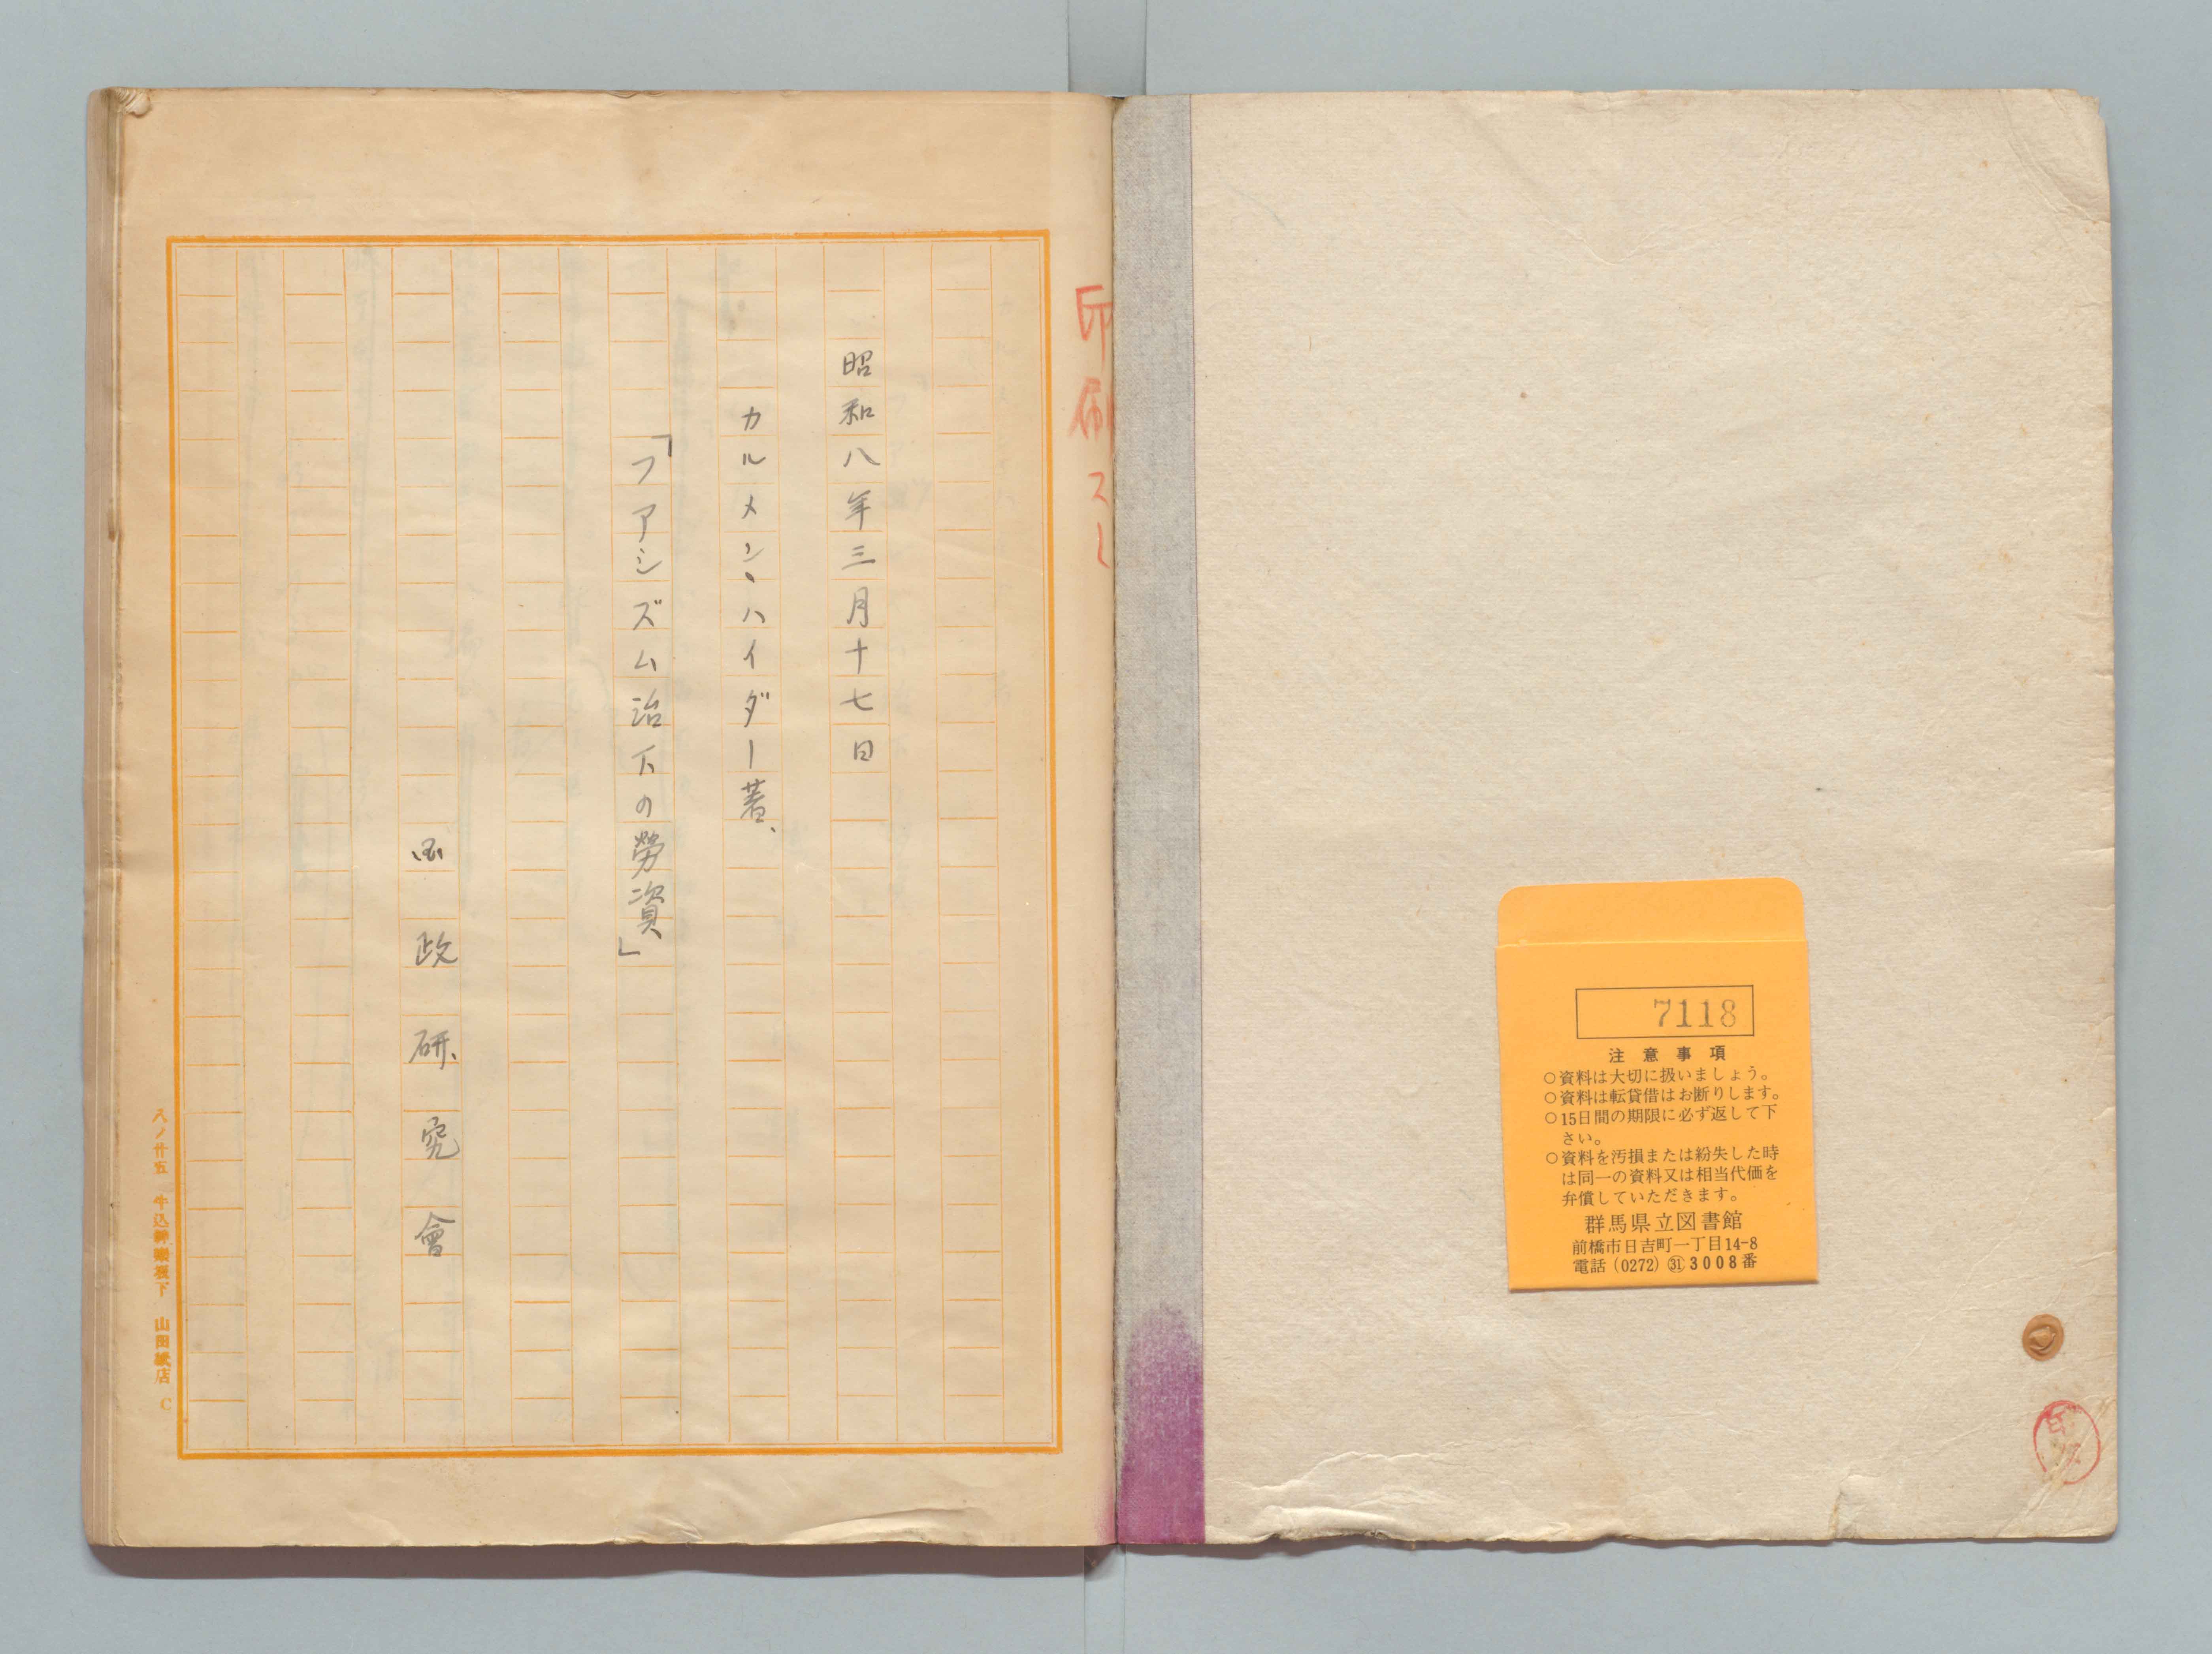 7118
注意事項
○資料は大切に扱いましょう。
○資料は転貸借はお断りします。
○15日間の期限に必ず返して下
さい。
○資料を汚損または紛失した時
は同一の資料又は相当代価を
弁償していただきます。
群馬県立図書館
前橋市日吉町一丁目14-8
電話(0272)㉛3008番
印刷ス
昭和八年三月十七日
カルメン、ハイダー著、
「フアシズム治下の勞資」
政研究會
八ノ廿五 牛込神樂坂下 山田紙店 C